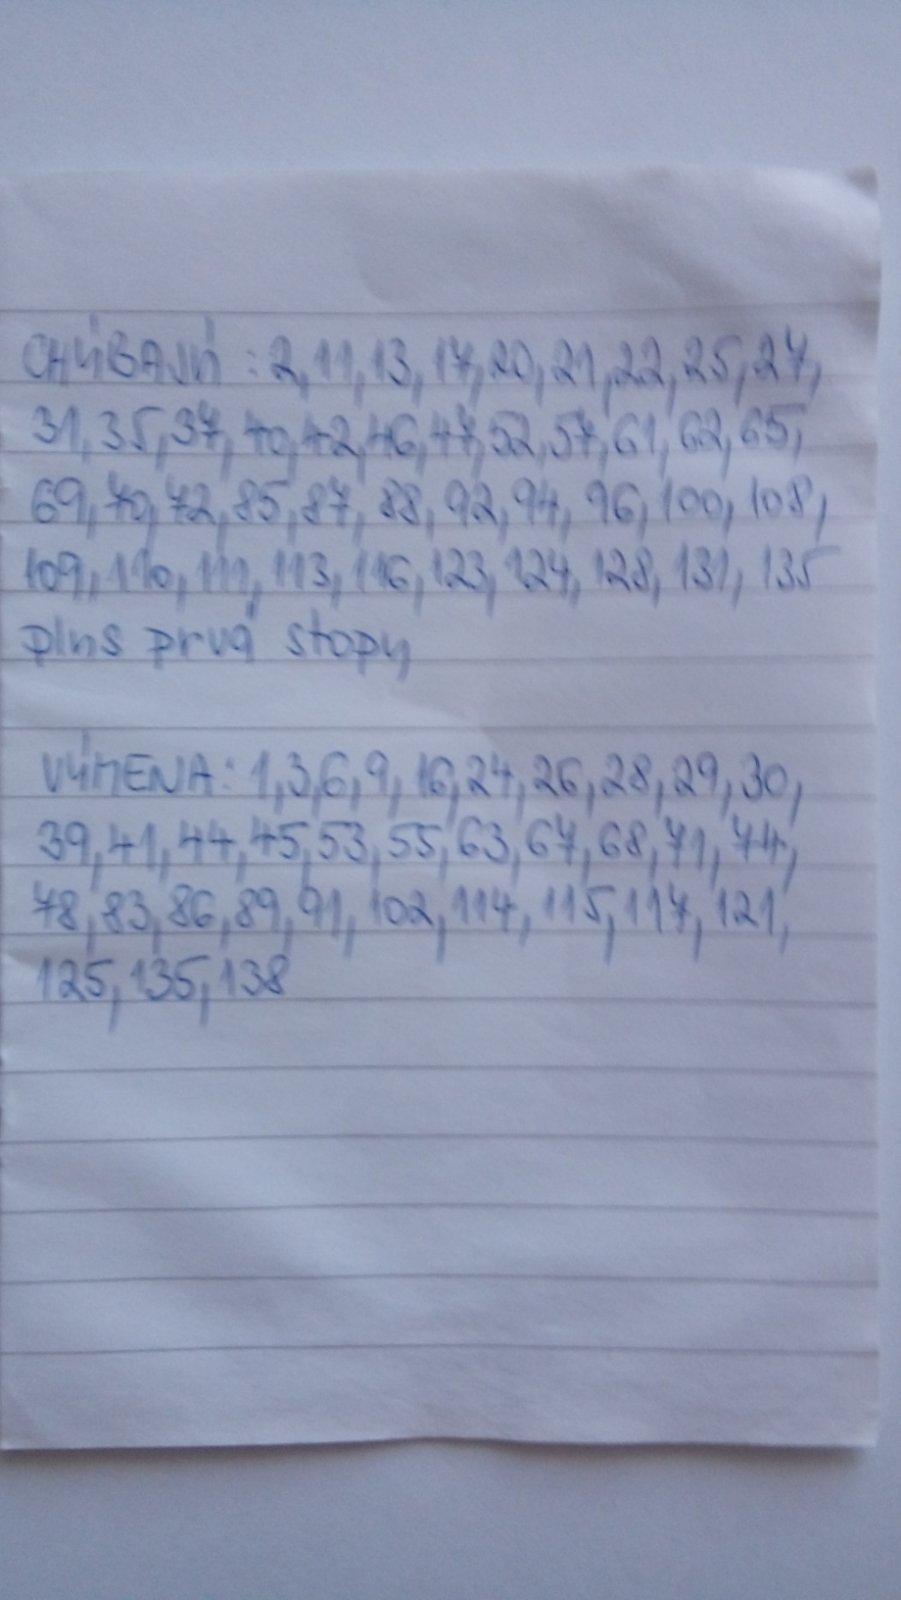 CHÝBAJÚ: 2, 11, 13, 17, 20, 21, 22, 25, 27,
31, 35, 37, 40, 42, 46, 47, 52, 57, 61, 62, 65,
69, 70, 72, 85, 87, 88, 92, 94, 96, 100, 108,
109, 110, 111, 113, 116, 123, 124, 128, 131, 135
plus prvá stopy
VÝMENA: 1, 3, 6, 9, 16, 24, 26, 28, 29, 30,
39, 41, 44, 45, 53, 55, 63, 67, 68, 71, 74,
78, 83, 86, 89, 91, 102, 114, 115, 117, 121,
125, 135, 138